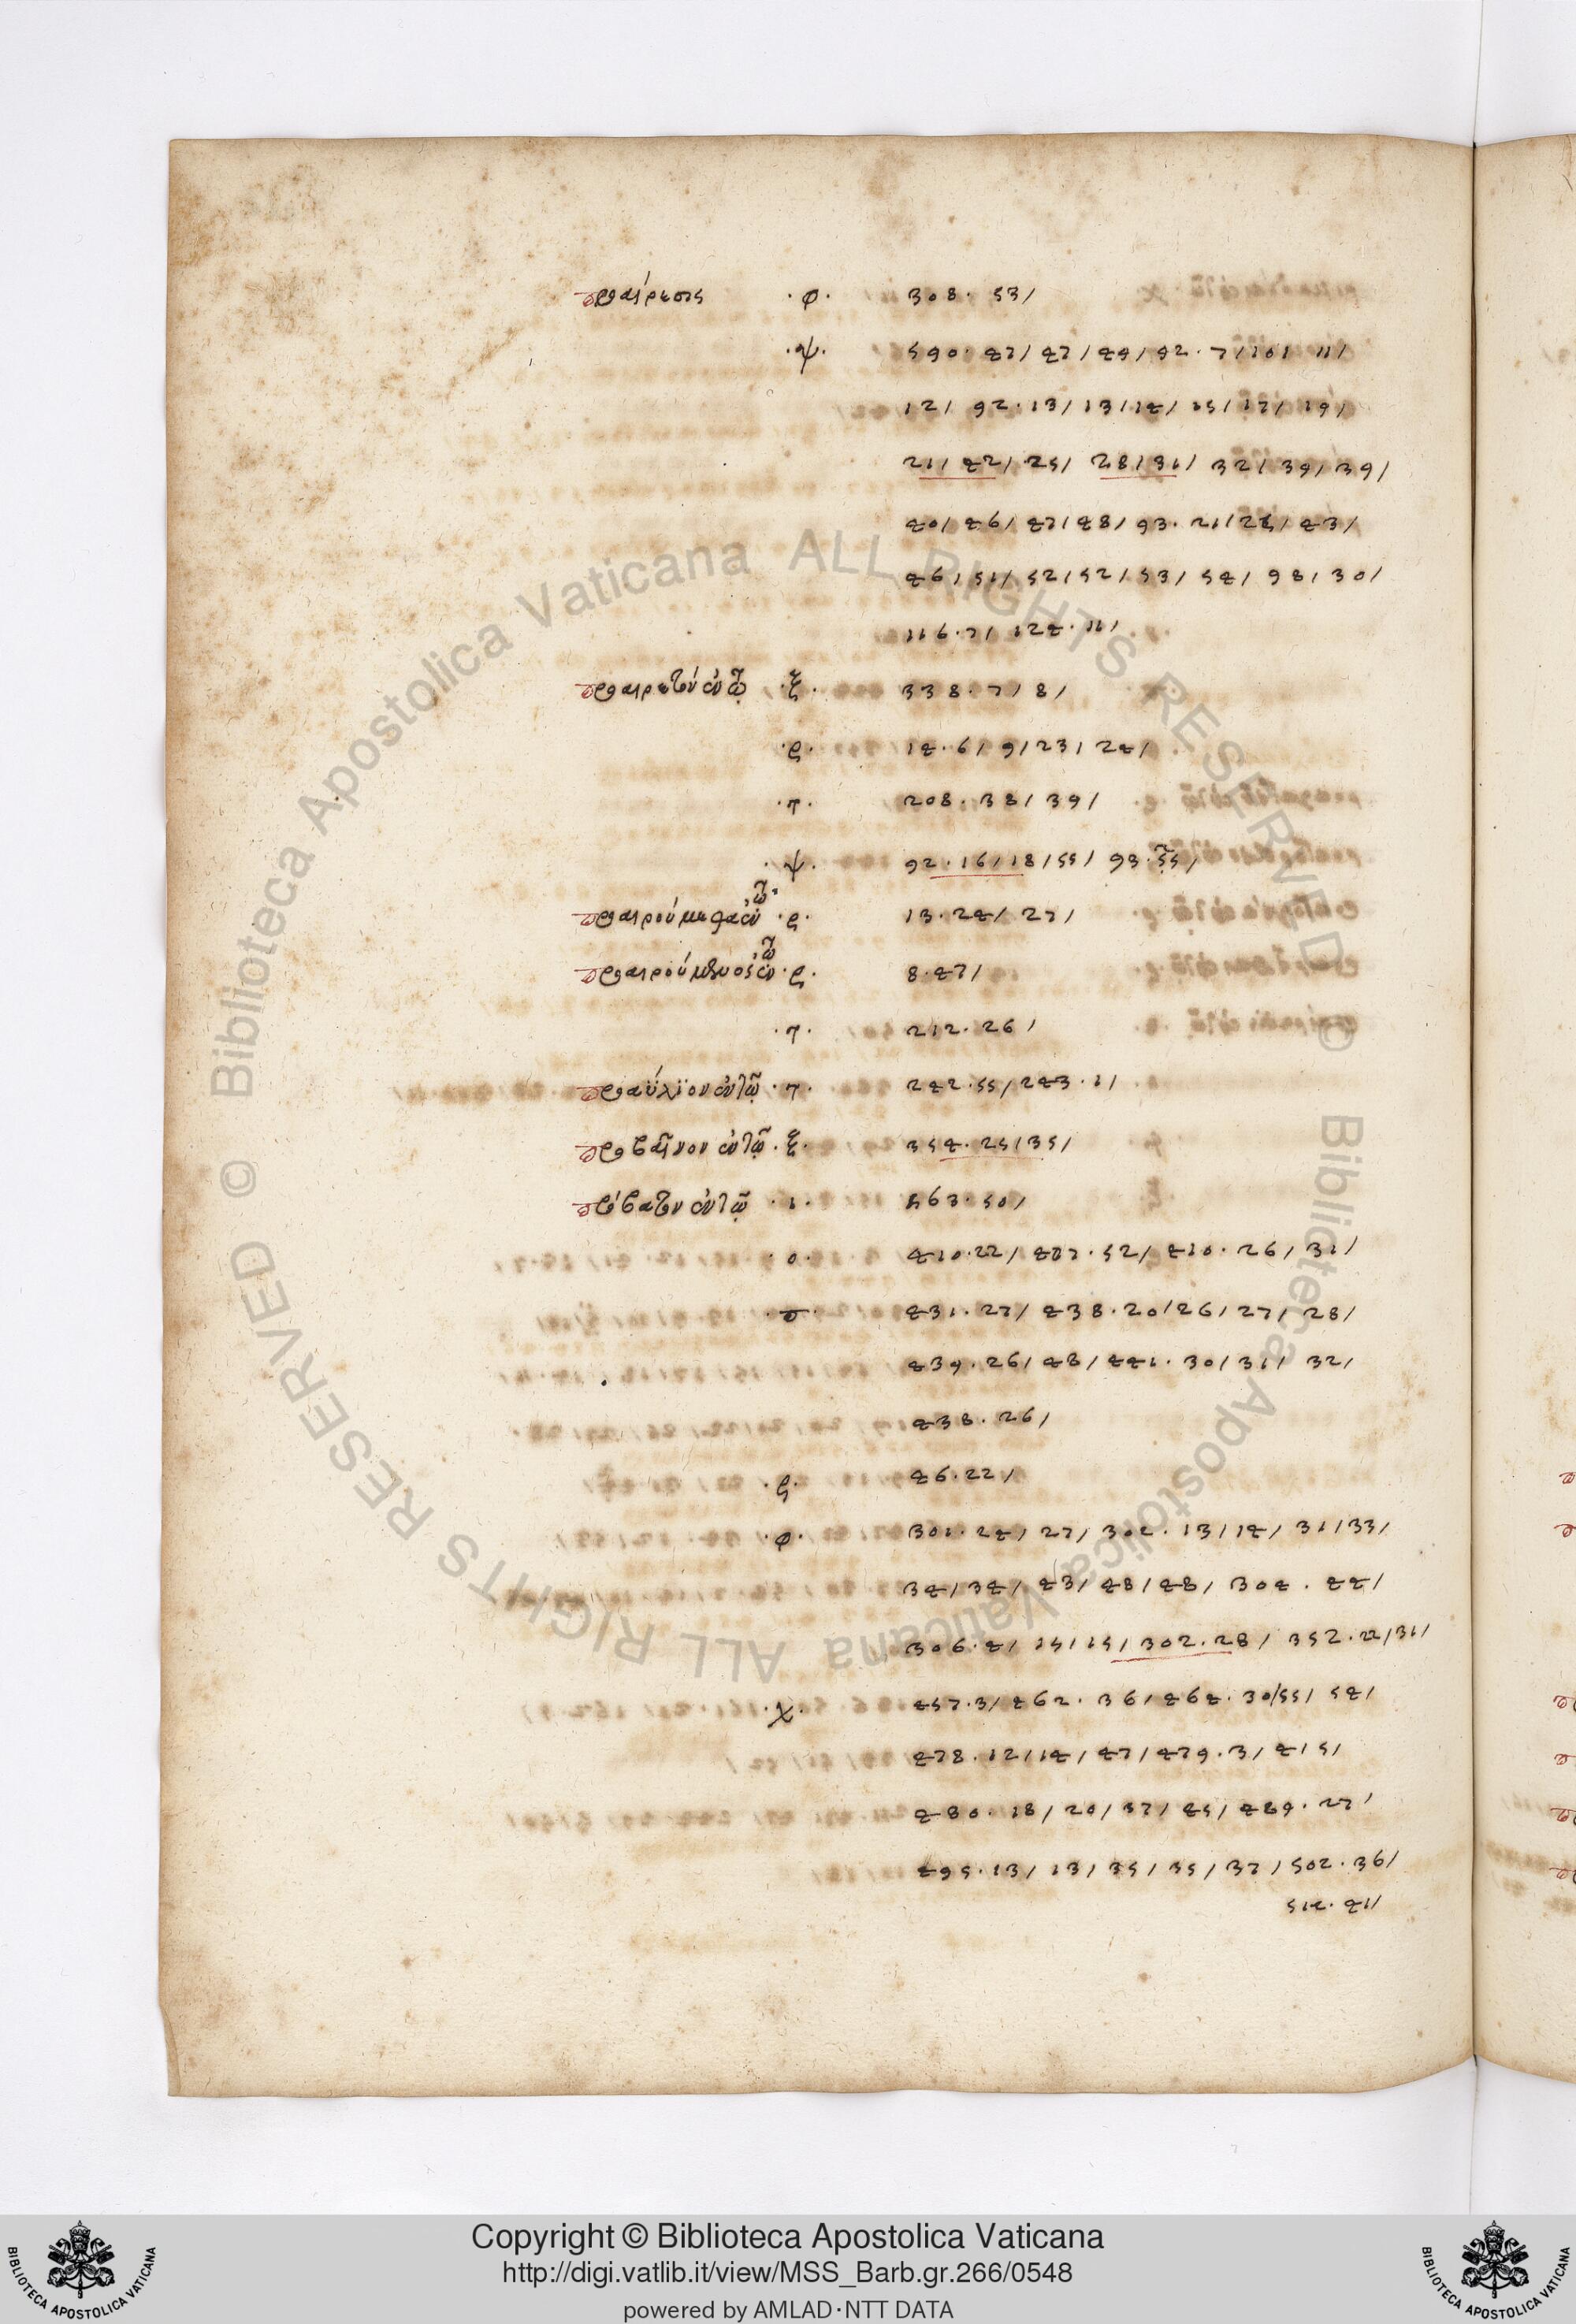 προαίρεσις ·φ· 308· 53/
·ψ· 590· 47/ 47/ 49/ 92· 7/ 10/ 11/
12/ 92·13/ 13/ 14/ 15/ 17/ 19/
21/ 42/ 25/ 28/ 31/ 32/ 39/ 39/
40/ 46/ 47/ 48/ 93· 21/ 43/
46/ 51/ 52/ 52/ 53/ 54/ 98/ 30/
116·7/ 124·11/
προαιρετὸν ἐν τῷ ·ξ· 338·7/ 8/
·ρ· 14·6/ 9/ 23/ 24/
·τ· 208· 38/ 39/
·ψ· 92·16/ 18/ 55/ 93·
ἐν τῷ ·ρ· 13·24/ 27/
προαιρούμενος ἐν τῷ ·ρ· 8·47/
·τ· 212·26/
προαύλϊον ἐν τῷ ·τ· 242·55/ 243·1/
προβαῖνον ἐν τῷ ·ξ· 354·25/ 35/
πρόβατον ἐν τῷ ·ι· 563·50/
·ο· 410·22/ 417·52/ 410·26/ 31/
·π· 431·27/ 438·20/ 26/ 27/ 28/
439·26/ 48/ 441·30/ 31/ 32/
438·26/
·ρ· 46·22/
·φ· 301·24/ 27/ 302·13/ 14/ 31/ 33/
34/ 34/ 43/ 48/ 48/ 304·44/
306·4/ 15/ 15/ 302·28/ 352·22/ 31/
·χ· 457·3/ 462·36/ 464·30/ 55/ 54/
478·12/ 14/ 47/ 479·3/ 4/ 5/
480·18/ 20/ 37/ 45/ 489·27/
495·13/ 13/ 35/ 35/ 37/ 502·36/
514·41/
Copyright © Biblioteca Apostolica Vaticana
http://digi.vatlib.it/view/MSS_Barb.gr.266/0548
powered by AMLAD·NTT DATA